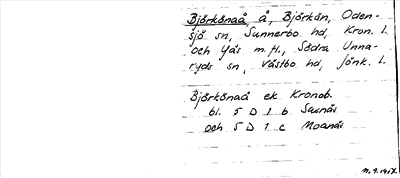 Björkönaå, å, Björkön, Oden-
sjö sn, Sunnerbo hd, Kron. l.
och Yås m.fl., Södra Unna-
ryds sn, Västbo hd, Jönk. l.
Björkönaå ek Kronob.
bl. 5 D 1 b Saxnäs
och 5 D 1 c Moanäs